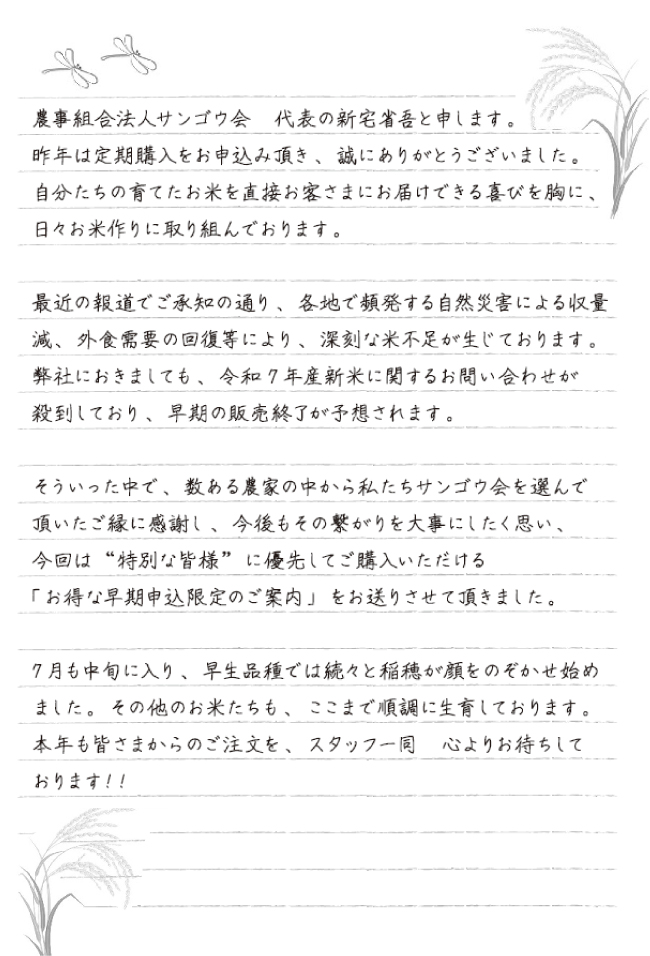 農事組合法人サンゴウ会　代表の新宅省吾と申します。
昨年は定期購入をお申込み頂き、誠にありがとうございました。
自分たちの育てたお米を直接お客さまにお届けできる喜びを胸に、
日々お米作りに取り組んでおります。
最近の報道でご承知の通り、各地で頻発する自然災害による収量
減、外食需要の回復等により、深刻な米不足が生じております。
弊社におきましても、令和7年産新米に関するお問い合わせが
殺到しており、早期の販売終了が予想されます。
そういった中で、数ある農家の中から私たちサンゴウ会を選んで
頂いたご縁に感謝し、今後もその繋がりを大事にしたく思い、
今回は“特別な皆様”に優先してご購入いただける
「お得な早期申込限定のご案内」をお送りさせて頂きました。
7月も中旬に入り、早生品種では続々と稲穂が顔をのぞかせ始め
ました。その他のお米たちも、ここまで順調に生育しております。
本年も皆さまからのご注文を、スタッフ一同　心よりお待ちして
おります!!